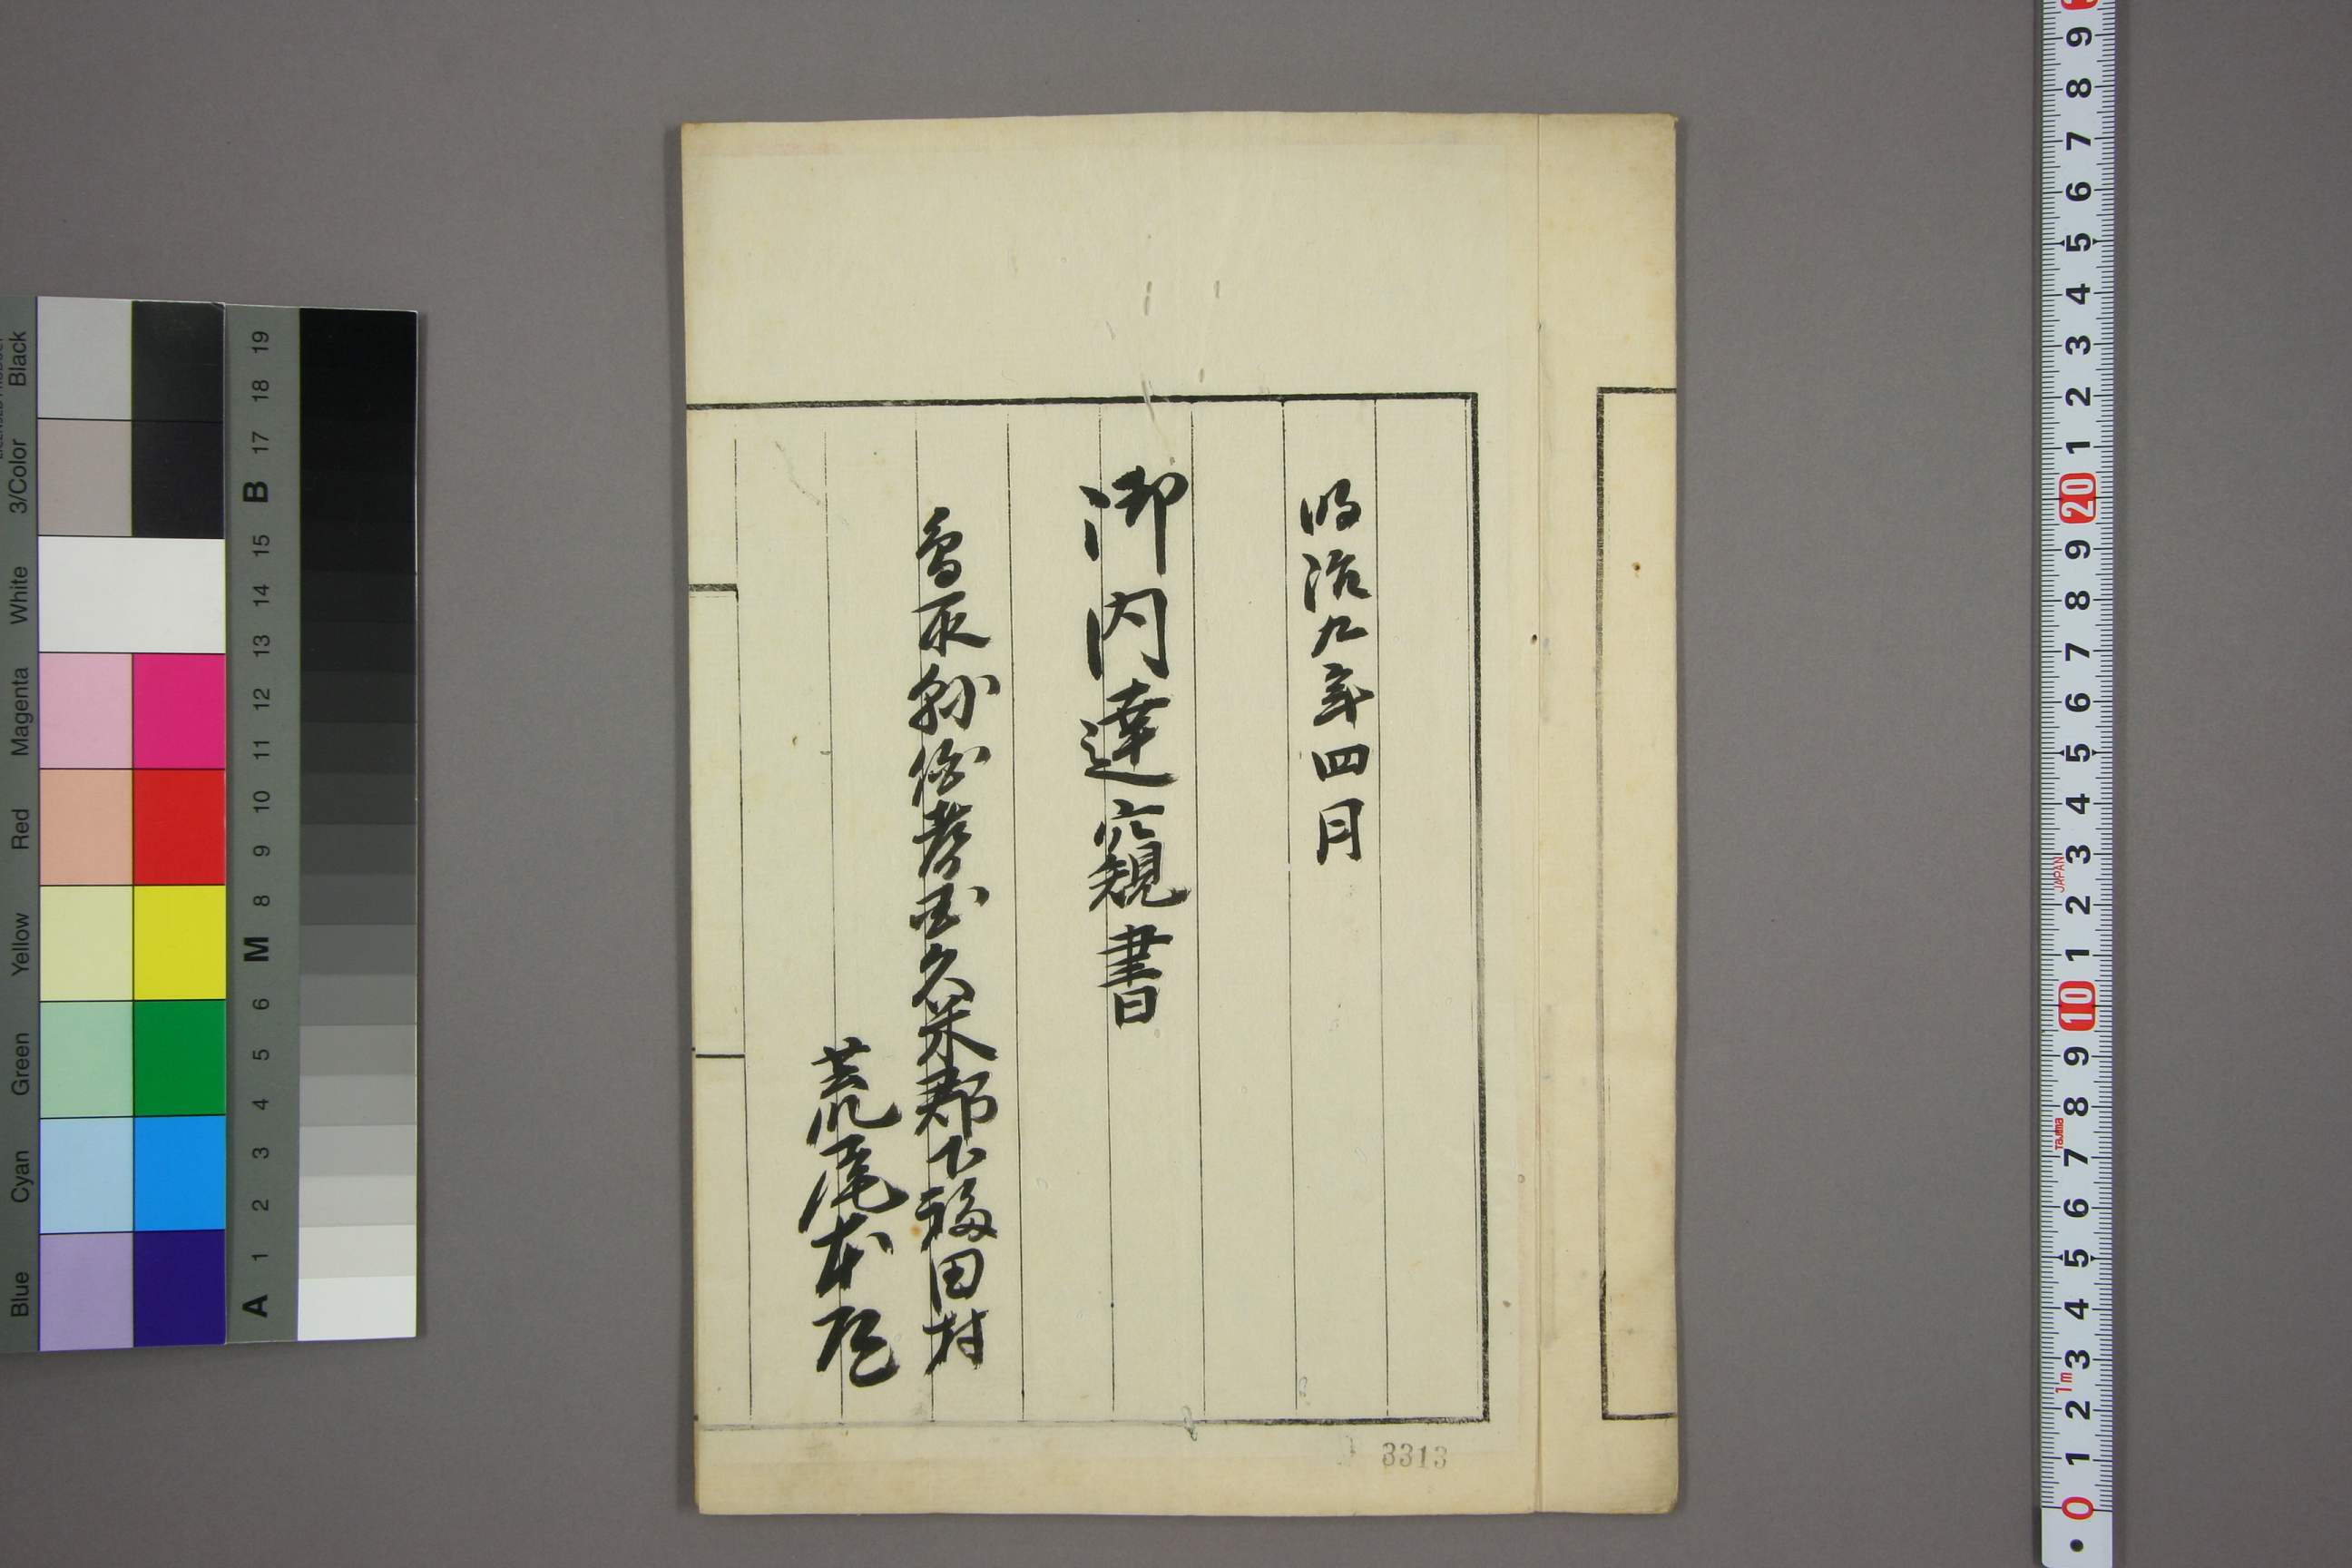 明治九年四月
御内達窺書
鳥取縣伯耆国久米郡下福田村
荒尾本
3313
Blue Cyan Green Yellow Red Magenta White 3/Color Black
A 1 2 3 4 5 6 M 8 9 10 11 12 13 14 15 B 17 18 19
0 1 2 3 4 5 6 7 8 9 10 1 2 3 4 5 6 7 8 9 20 1 2 3 4 5 6 7 8 9
1m Tajima JAPAN